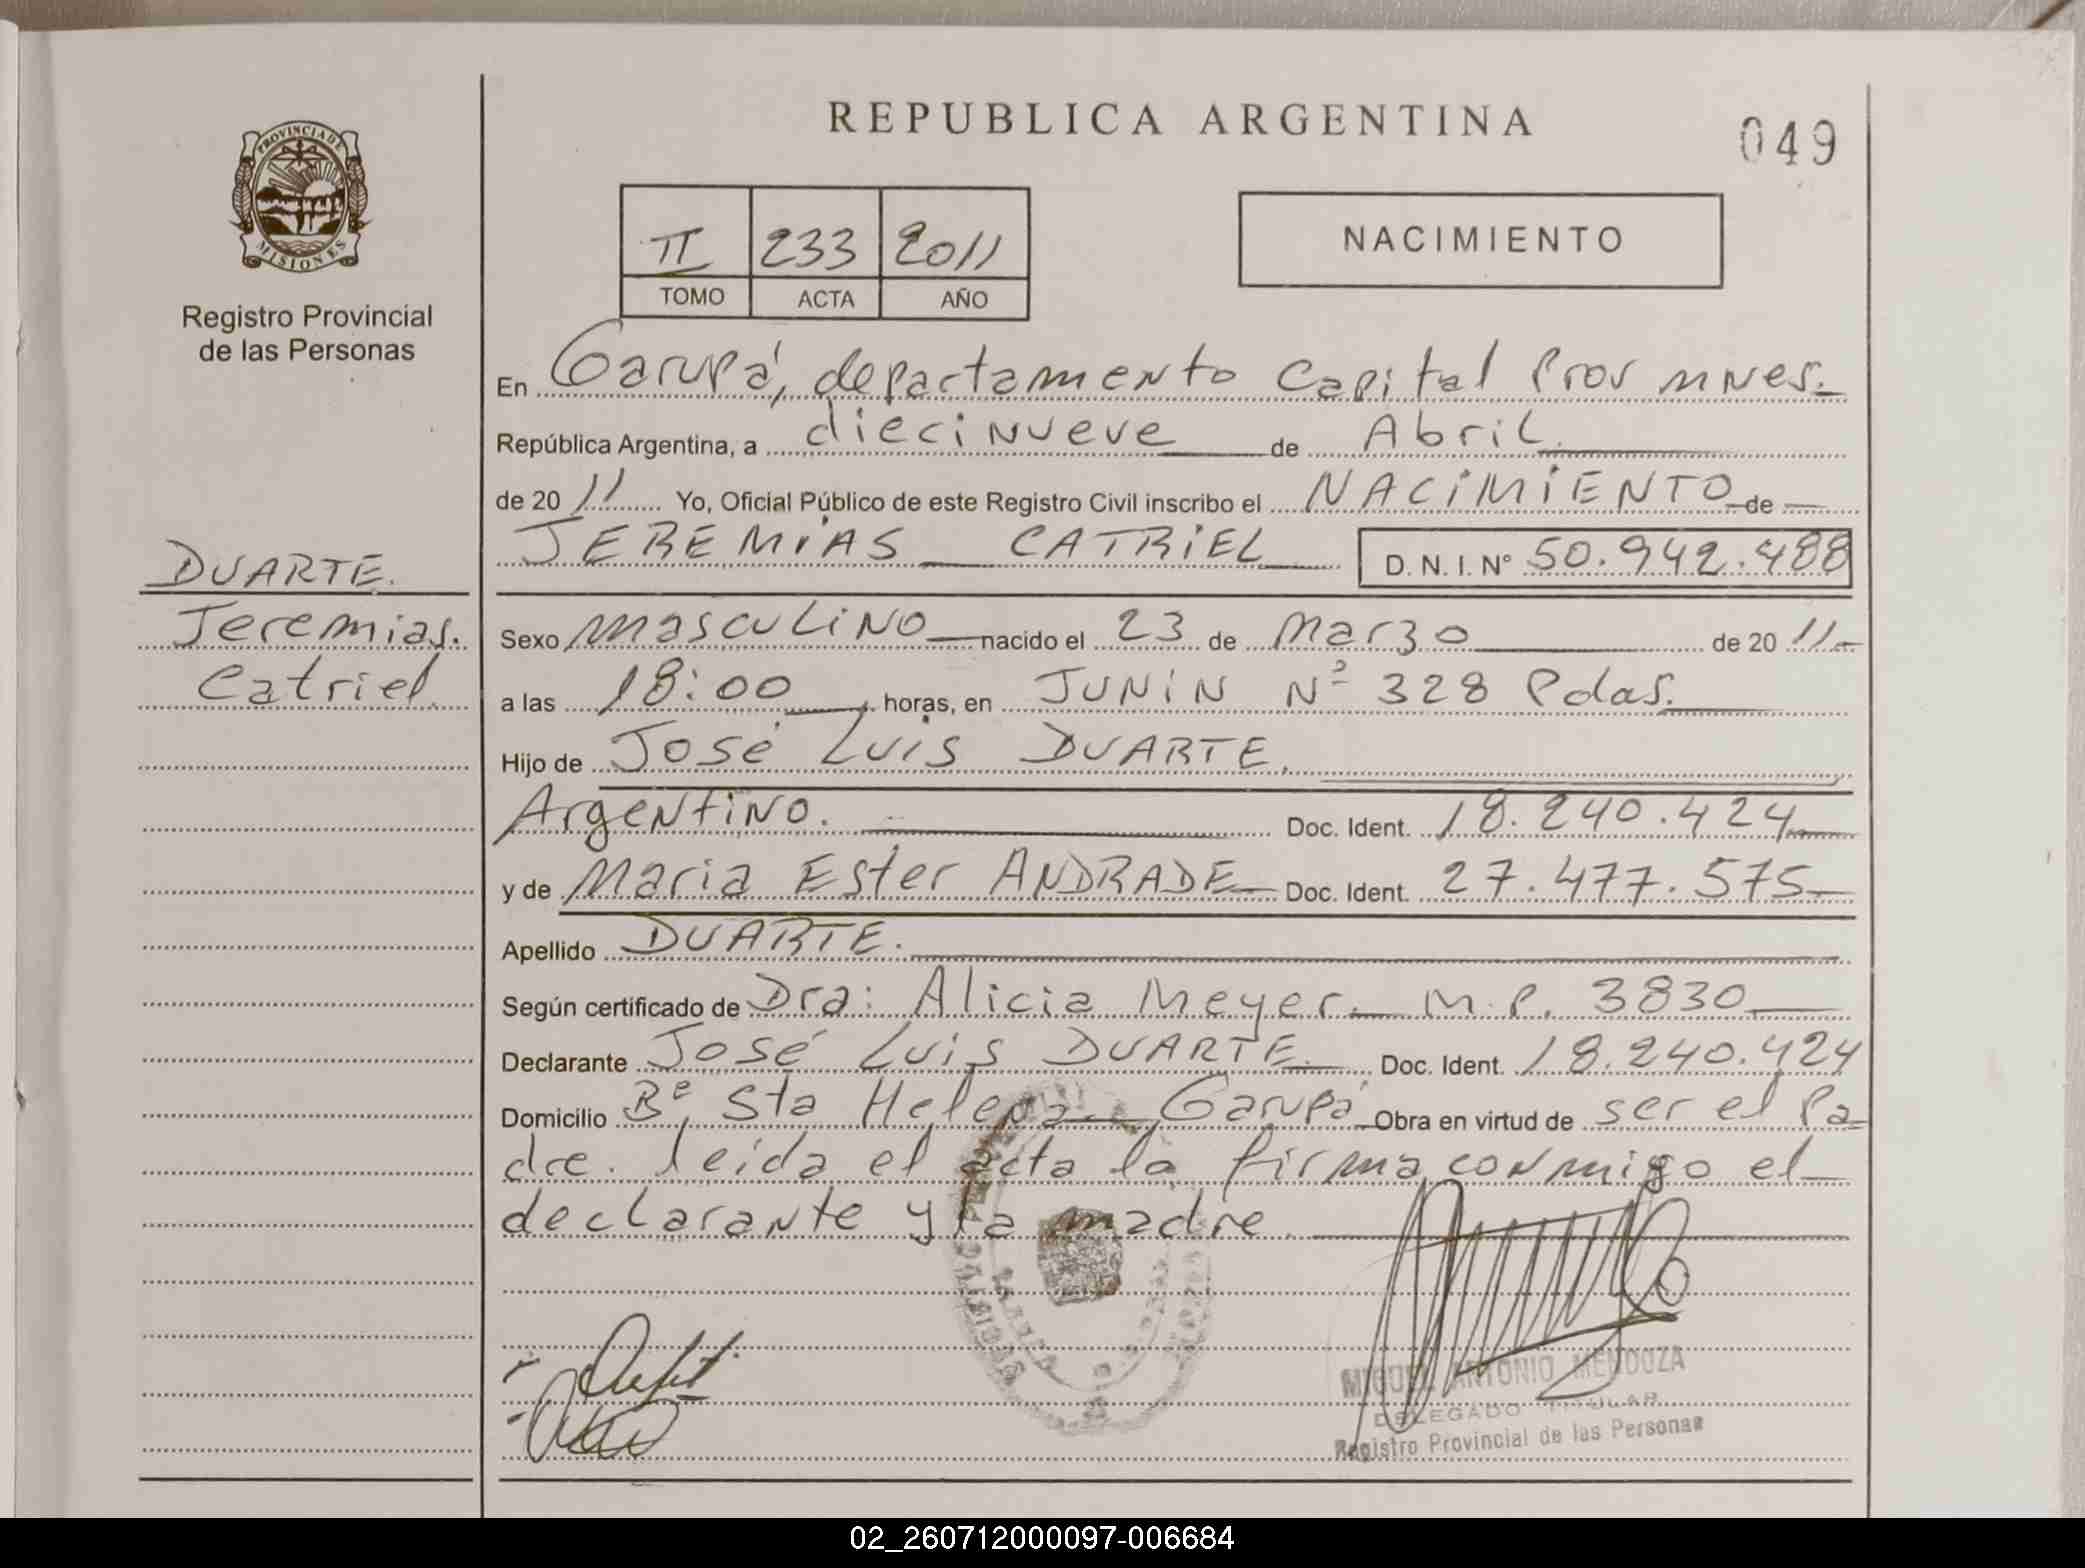 REPUBLICA ARGENTINA
049
PROVINCIA DE
MISIONES
Registro Provincial
de las Personas
II 233 2011
TOMO ACTA AÑO
NACIMIENTO
En Garupá, departamento Capital Prov mnes.
República Argentina, a diecinueve de Abril.
de 20 11 Yo, Oficial Público de este Registro Civil inscribo el NACIMIENTO de
JEREMIAS CATRIEL D. N. I. N° 50.942.488
DUARTE.
Jeremias.
Catriel.
Sexo masculino nacido el 23 de Marzo de 20 11
a las 18:00 horas, en JUNIN Nº 328 Pdas.
Hijo de José Luis DUARTE.
Argentino. Doc. Ident. 18.240.424
y de Maria Ester ANDRADE Doc. Ident. 27.477.575
Apellido DUARTE.
Según certificado de Dra: Alicia Meyer. M.P. 3830
Declarante José Luis DUARTE Doc. Ident. 18.240.424
Domicilio Bº Sta Helena Garupá Obra en virtud de ser el Pa-
dre. leida el acta la firma conmigo el
declarante y la madre.
MIGUEL ANTONIO MENDOZA
DELEGADO TITULAR
Registro Provincial de las Personas
02_260712000097-006684